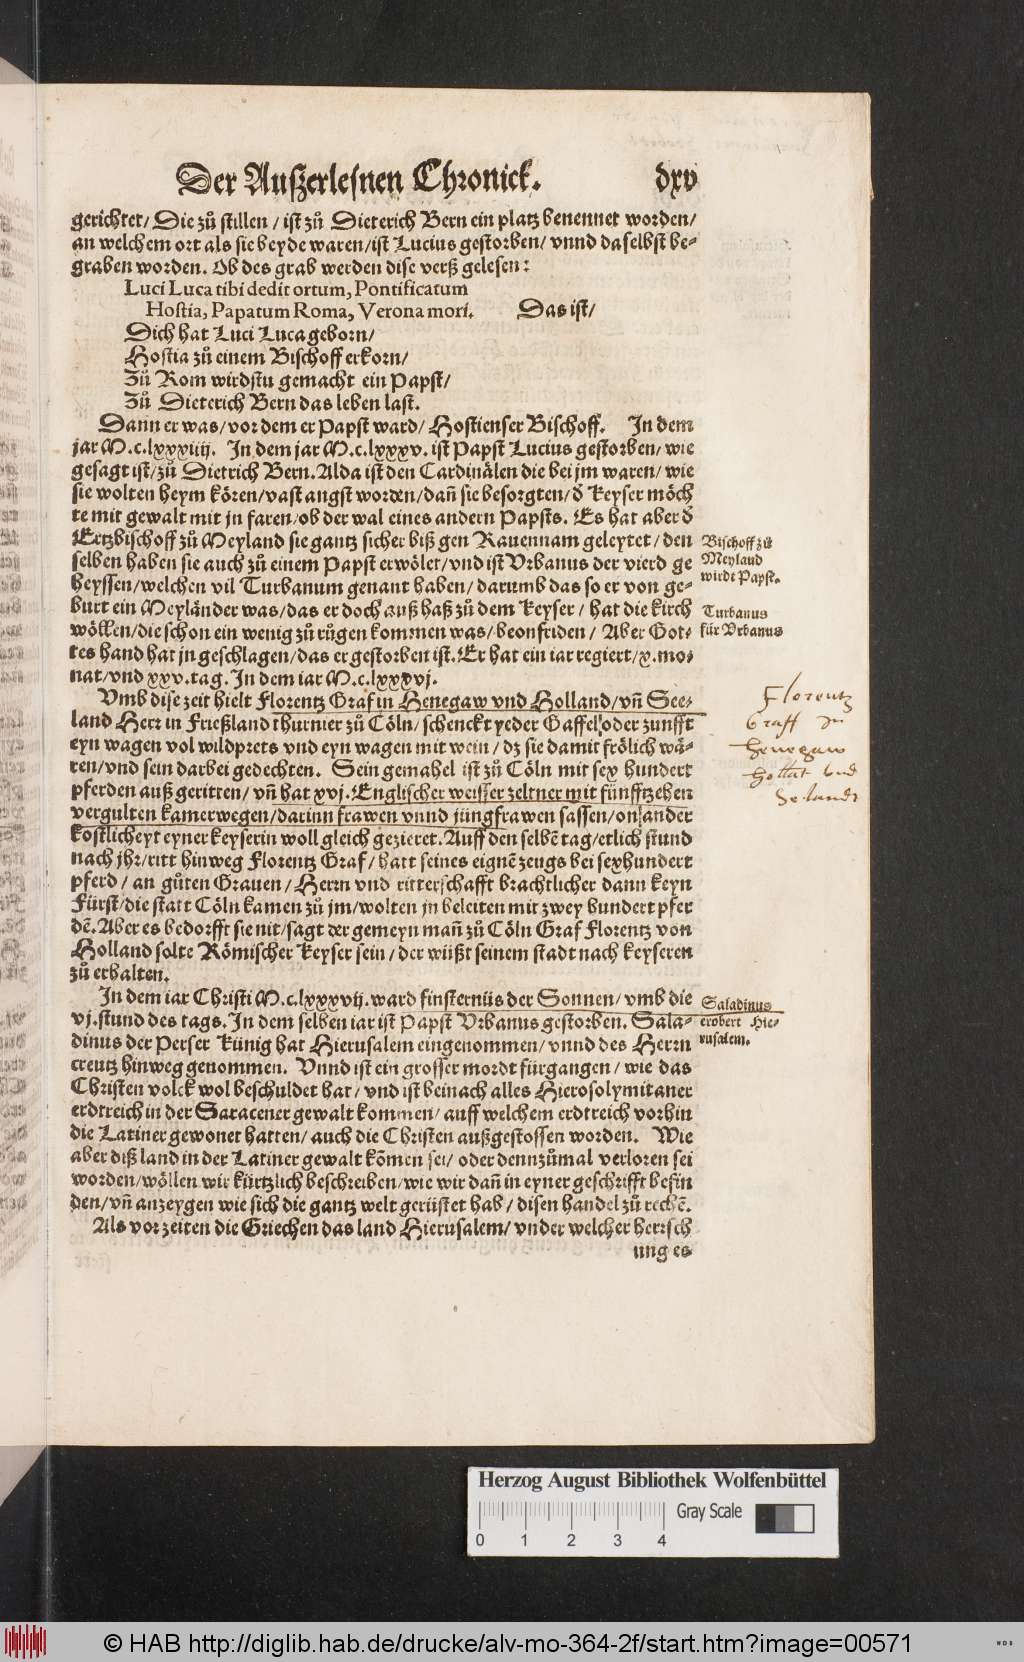 Der Außzerlesnen Chronick. dxv
gerichtet/ Die zů stillen / ist zů Dieterich Bern ein platz benennet worden/
an welchem ort als sie beyde waren/ist Lucius gestorben/ vnnd daselbst be-
graben worden. Ob des grab werden dise verß gelesen:
Luci Luca tibi dedit ortum, Pontificatum
Hostia, Papatum Roma, Verona mori. Das ist/
Dich hat Luci Luca geborn/
Hostia zů einem Bischoff erkorn/
Zů Rom wirdstu gemacht ein Papst/
Zů Dieterich Bern das leben last.
Dann er was/ vor dem er Papst ward/ Hostienser Bischoff. In dem
jar M.c.lxxxiiij. In dem jar M.c.lxxxv. ist Papst Lucius gestorben/ wie
gesagt ist/zů Dietrich Bern. Alda ist den Cardinälen die bei jm waren/ wie
sie wolten heym kören/vast angst worden/dañ sie besorgten/ď Keyser möch
te mit gewalt mit jn faren/ob der wal eines andern Papsts. Es hat aber ď
Ertzbischoff zů Meyland sie gantz sicher biß gen Rauennam geleytet/ den
selben haben sie auch zů einem Papst erwölet/vnd ist Vrbanus der vierd ge
heyssen/welchen vil Turbanum genant haben/ darumb das so er von ge-
burt ein Meyländer was/das er doch auß haß zů dem Keyser/ hat die kirch
wöllen/die schon ein wenig zů růgen kommen was/ beonfriden/ Aber Got-
tes hand hat jn geschlagen/das er gestorben ist. Er hat ein iar regiert/x.mo-
nat/vnd xxv.tag. In dem iar M.c.lxxxvj.
Bischoff zů
Meyland
wirdt Papst.
Turbanus
für Vrbanus
Vmb dise zeit hielt Florentz Graf in Henegaw vnd Holland/vñ See-
land Herr in Frießland thurnier zů Cöln/schenckt yeder Gaffel oder zunfft
eyn wagen vol wildprets vnd eyn wagen mit wein/ dz sie damit frölich wä-
ren/vnd sein darbei gedechten. Sein gemahel ist zů Cöln mit sex hundert
pferden auß geritten/ vñ hat xvj. Englischer weisser zeltner mit fünfftzehen
vergulten kamerwegen/darinn frawen vnnd jungfrawen sassen/on ander
kostlicheyt eyner keyserin woll gleich gezieret. Auff den selbē tag/etlich stund
nach jhr/ritt hinweg Florentz Graf/ hatt seines eignē zeugs bei sexhundert
pferd/ an gůten Grauen/Herrn vnd ritterschafft brachtlicher dann keyn
Fürst/die statt Cöln kamen zů jm/wolten jn beleiten mit zwey hundert pfer
dē. Aber es bedorfft sie nit/sagt der gemeyn mañ zů Cöln Graf Florentz von
Holland solte Römischer Keyser sein/ der wüßt seinem stadt nach keyseren
zů erhalten.
Florentz
Graff zu
Henegaw
Hollat vnd
Selandt
In dem iar Christi M.c.lxxxvij. ward finsternüs der Sonnen/ vmb die
vj.stund des tags. In dem selben iar ist Papst Vrbanus gestorben. Sala-
dinus der Perser Künig hat Hierusalem eingenommen/ vnnd des Herrn
creutz hinweg genommen. Vnnd ist ein grosser mordt fürgangen/ wie das
Christen volck wol beschuldet hat/ vnd ist beinach alles Hierosolymitaner
erdtreich in der Saracener gewalt kommen/ auff welchem erdtreich vorhin
die Latiner gewonet hatten/ auch die Christen außgestossen worden. Wie
aber diß land in der Latiner gewalt kōmen sei/ oder dennzůmal verloren sei
worden/wöllen wir kürtzlich beschreiben/wie wir dañ in eyner geschrifft befin
den/vñ anzeygen wie sich die gantz welt gerüstet hab/ disen handel zů rechē.
Als vor zeiten die Griechen das land Hierusalem/ vnder welcher herrsch
ung es
Saladinus
erobert Hie-
rusalem.
Herzog August Bibliothek Wolfenbüttel
Gray Scale
0 1 2 3 4
© HAB http://diglib.hab.de/drucke/alv-mo-364-2f/start.htm?image=00571